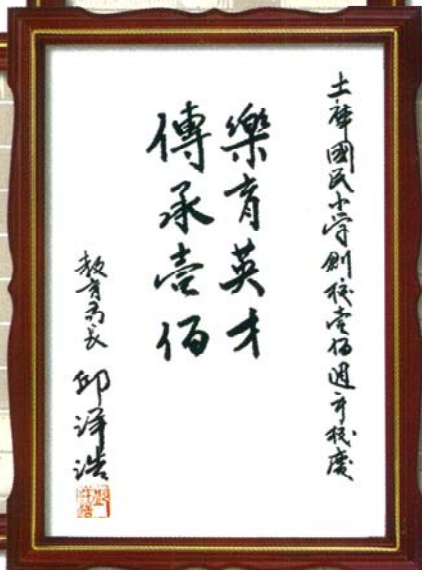 土庫國民小学創校壹佰週年校慶
樂育英才
傳承壹佰
教育局長 邱 浩